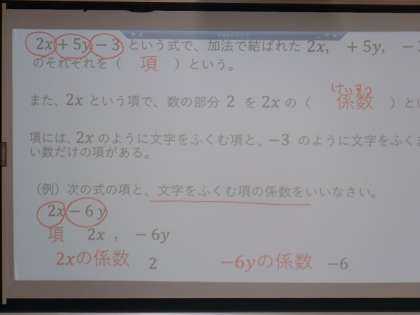 2x + 5y − 3 という式で、加法で結ばれた 2x, +5y, −3
のそれぞれを（ 項 ）という。
けいすう
また、2x という項で、数の部分 2 を 2x の（ 係数 ）と
項には、2x のように文字をふくむ項と、−3 のように文字をふくま
い数だけの項がある。
（例）次の式の項と、文字をふくむ項の係数をいいなさい。
2x − 6y
項 2x , −6y
2xの係数 2 −6yの係数 −6